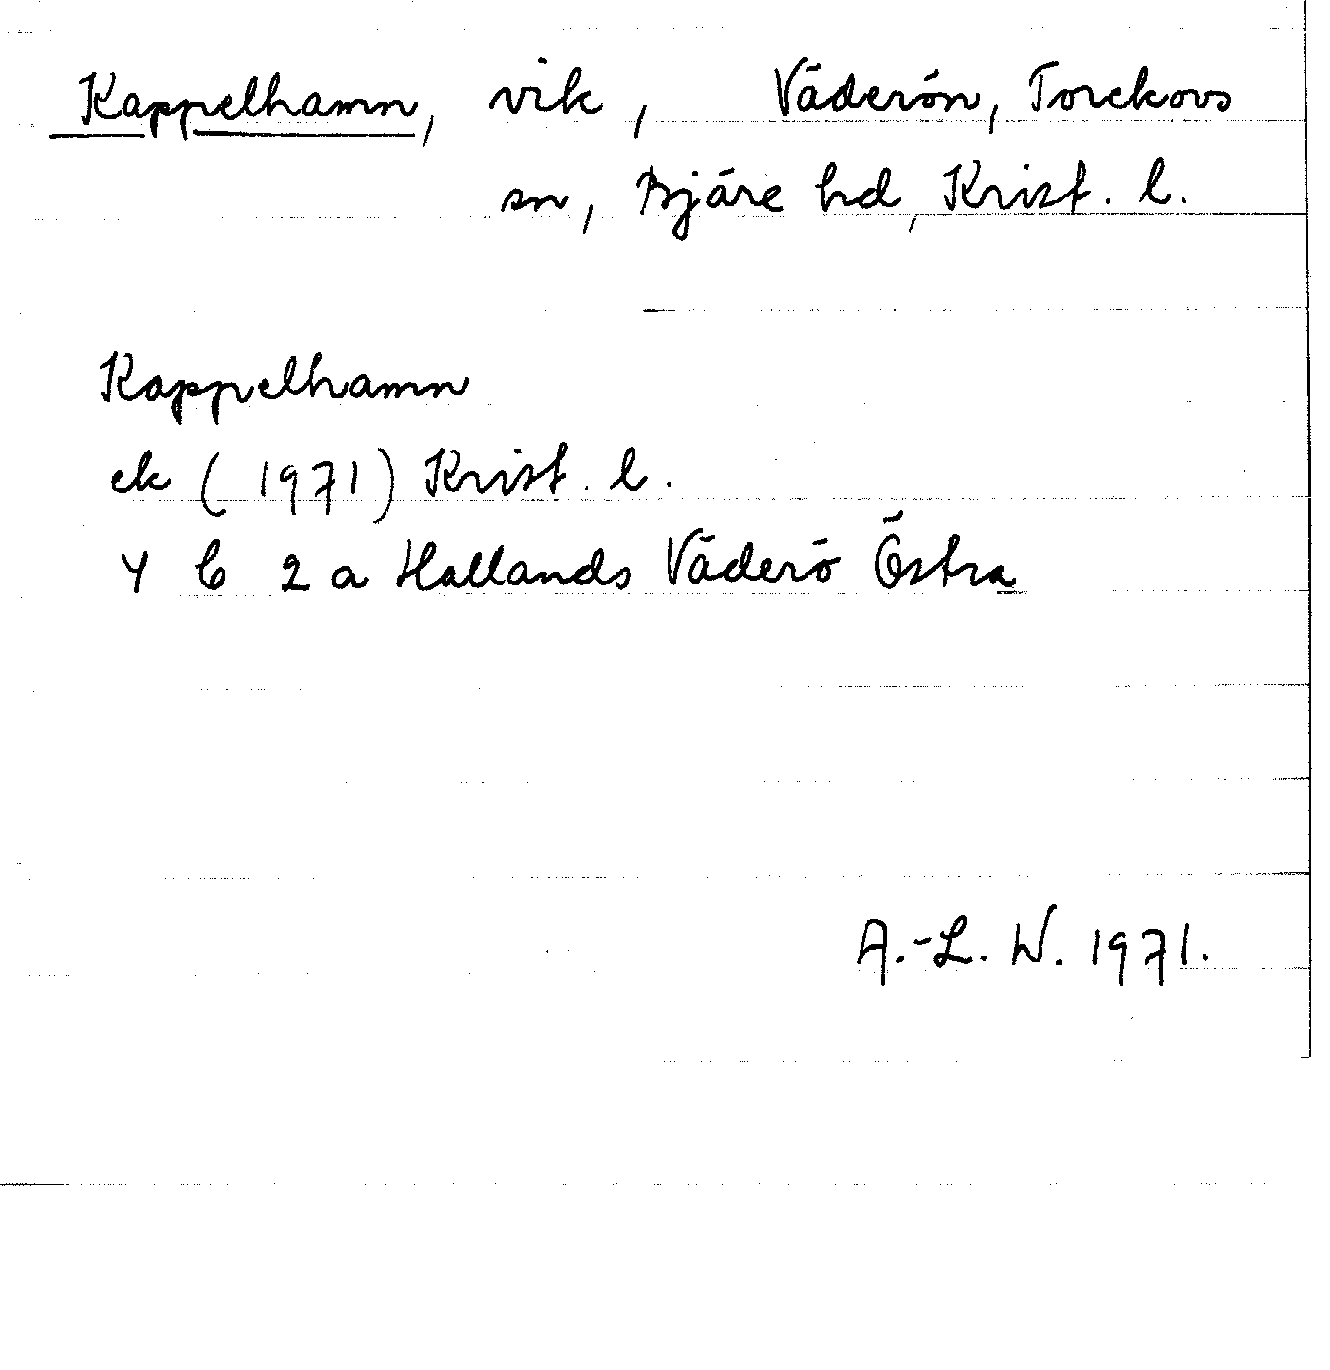 Kappelhamn, vik, Väderön, Torekovs
sn, Bjäre hd, Krist. l.
Kappelhamn
ek (1971) Krist. l.
4 C 2 a Hallands Väderö Östra
A.-L. W. 1971.